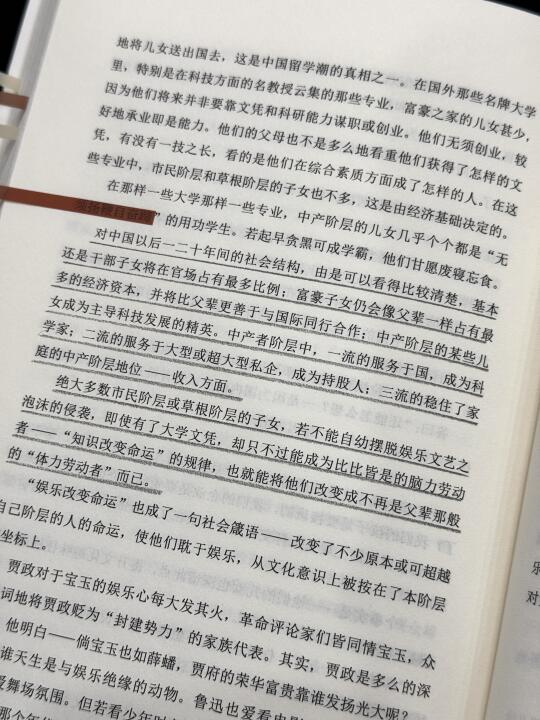 地将儿女送出国去，这是中国留学潮的真相之一。在国外那些名牌大学
里，特别是在科技方面的名教授云集的那些专业，富豪之家的儿女甚少，
因为他们将来并非要靠文凭和科研能力谋职或创业。他们无须创业，较
好地承业即是能力。他们的父母也不是多么地看重他们获得了怎样的文
凭，有没有一技之长，看的是他们在综合素质方面成了怎样的人。在这
些专业中，市民阶层和草根阶层的子女也不多，这是由经济基础决定的。
在那样一些大学那样一些专业，中产阶层的儿女几乎个个都是“无
”的用功学生。若起早贪黑可成学霸，他们甘愿废寝忘食。
对中国以后一二十年间的社会结构，由是可以看得比较清楚，基本
还是干部子女将在官场占有最多比例；富豪子女仍会像父辈一样占有最
多的经济资本，并将比父辈更善于与国际同行合作；中产阶层的某些儿
女成为主导科技发展的精英。中产者阶层中，一流的服务于国，成为科
学家；二流的服务于大型或超大型私企，成为持股人；三流的稳住了家
庭的中产阶层地位——收入方面。
绝大多数市民阶层或草根阶层的子女，若不能自幼摆脱娱乐文艺之
泡沫的侵袭，即使有了大学文凭，却只不过能成为比比皆是的脑力劳动
者——“知识改变命运”的规律，也就能将他们改变成不再是父辈那般
的“体力劳动者”而已。
“娱乐改变命运”也成了一句社会箴语——改变了不少原本或可超越
自己阶层的人的命运，使他们耽于娱乐，从文化意识上被按在了本阶层
坐标上。
贾政对于宝玉的娱乐心每大发其火，革命评论家们皆同情宝玉，众
词地将贾政贬为“封建势力”的家族代表。其实，贾政是多么的深
他明白——倘宝玉也如薛蟠，贾府的荣华富贵靠谁发扬光大呢？
谁天生是与娱乐绝缘的动物。鲁迅也爱看电影
爱舞场氛围。但若看少年时